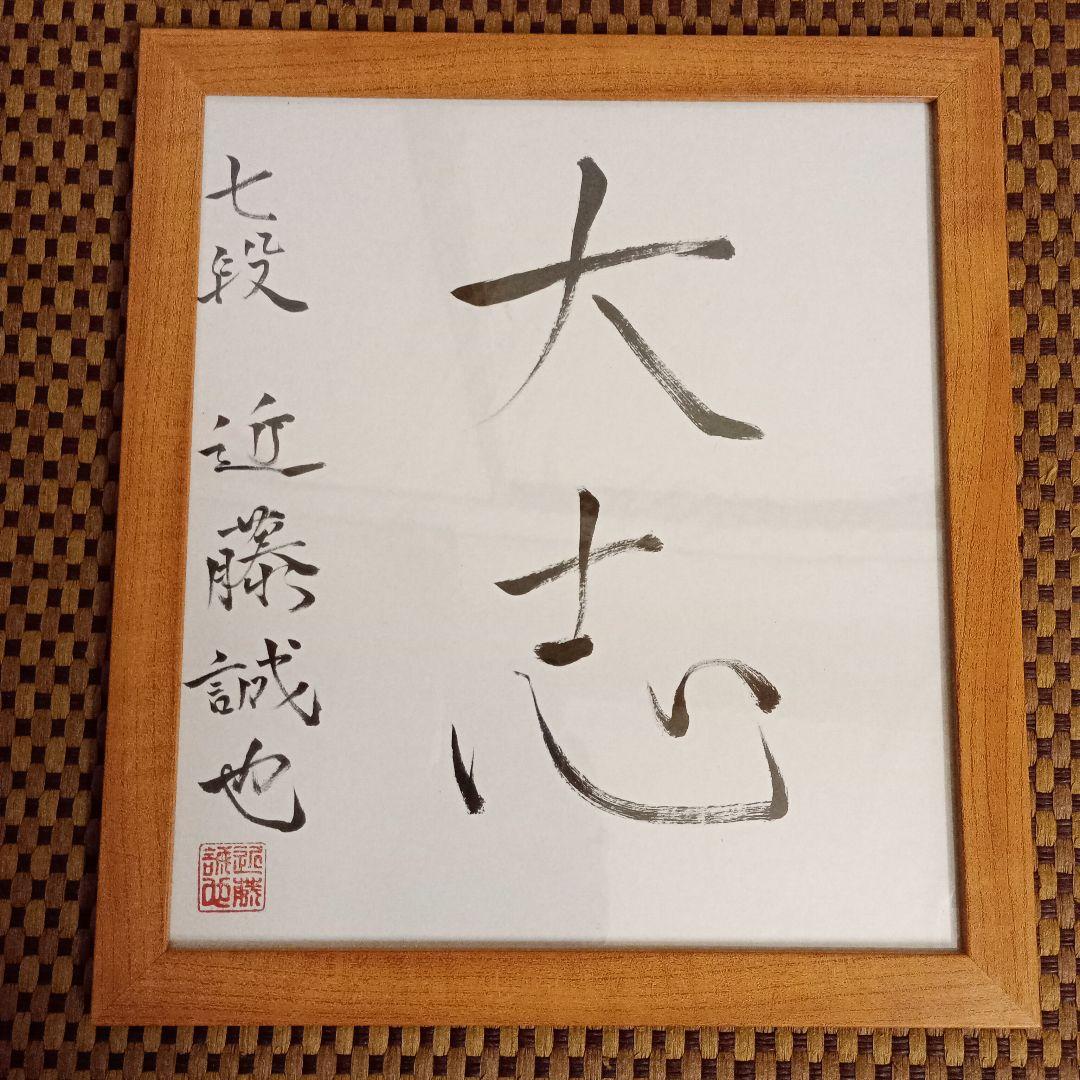 大志
七段 近藤誠也
近藤誠也